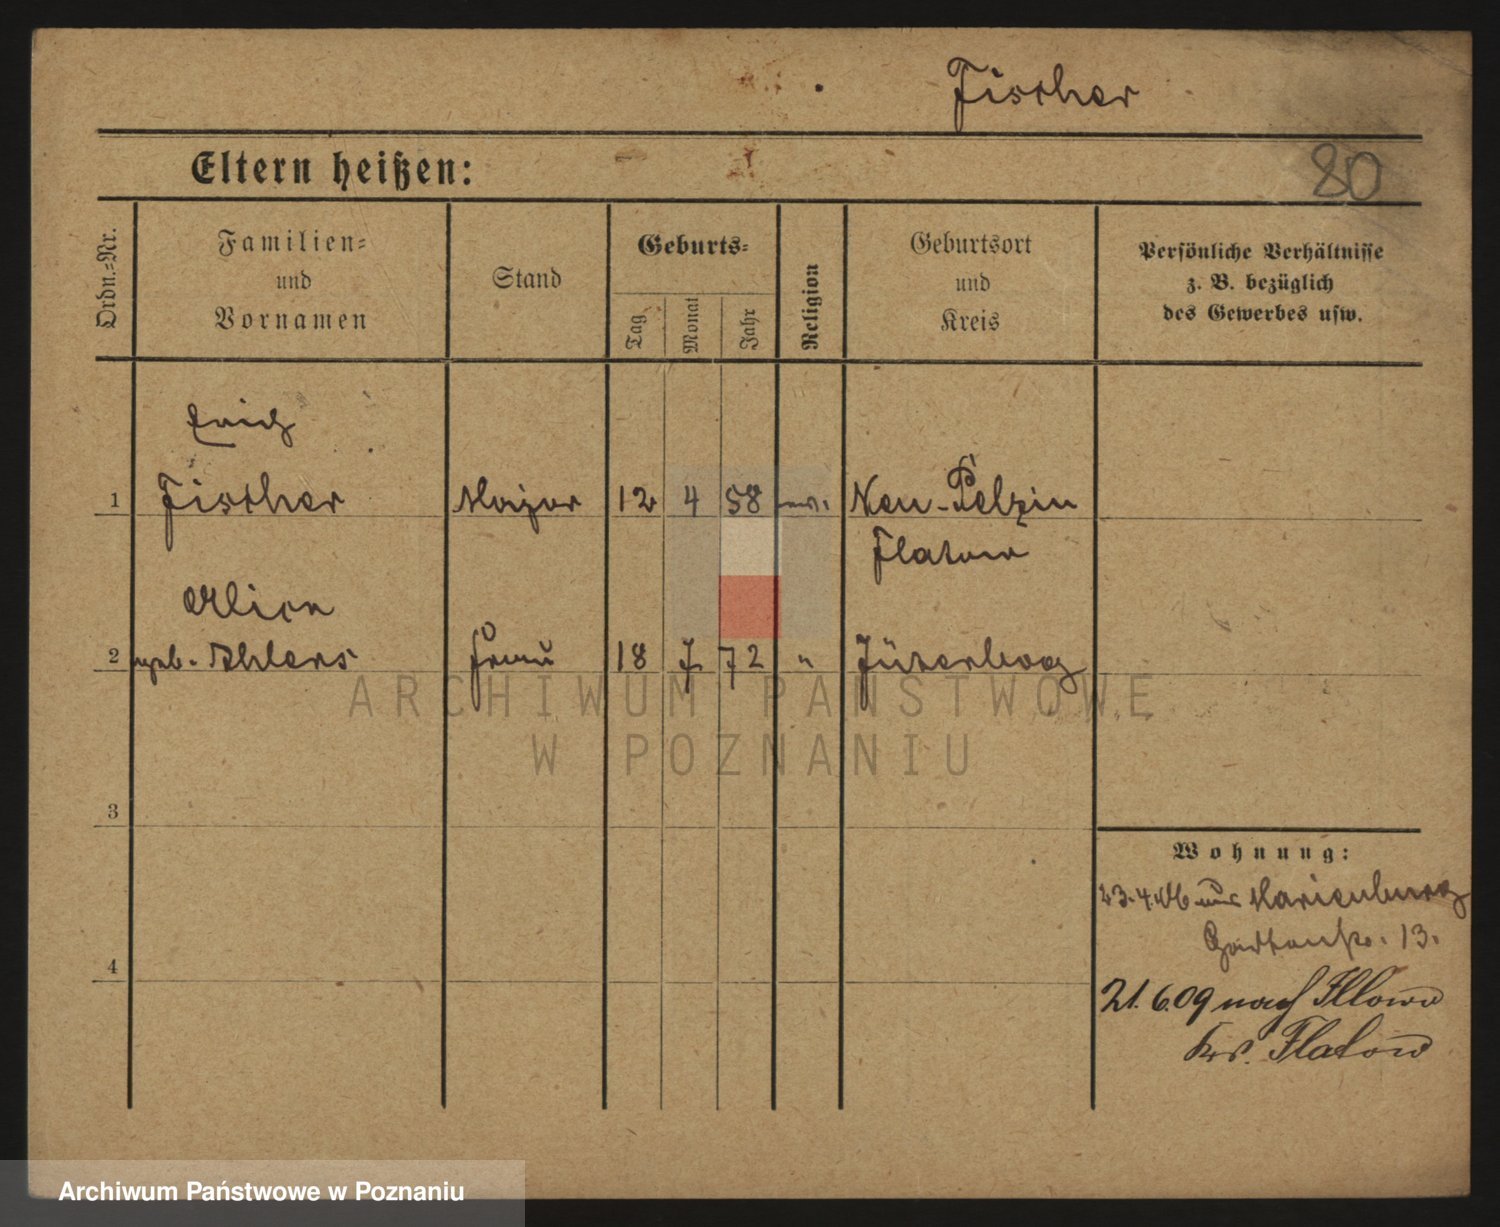 Fischer
Eltern heißen:
80
Ordn.-Nr.
Familien-
und
Vornamen
Stand
Geburts-
Tag
Monat
Jahr
Religion
Geburtsort
und
Kreis
Persönliche Verhältnisse
z. B. bezüglich
des Gewerbes usw.
Erich
1 Fischer Major 12 4 58 Neu-Pelzin
Flatow
2 geb. Ehlers Frau 18 7. 72 " Jüterbog
3
4
Wohnung:
23.4.06 aus Marienburg
Gartenstr. 13.
21.6.09 nach Illowo
Krs. Flatow
ARCHIWUM PAŃSTWOWE
W POZNANIU
Archiwum Państwowe w Poznaniu